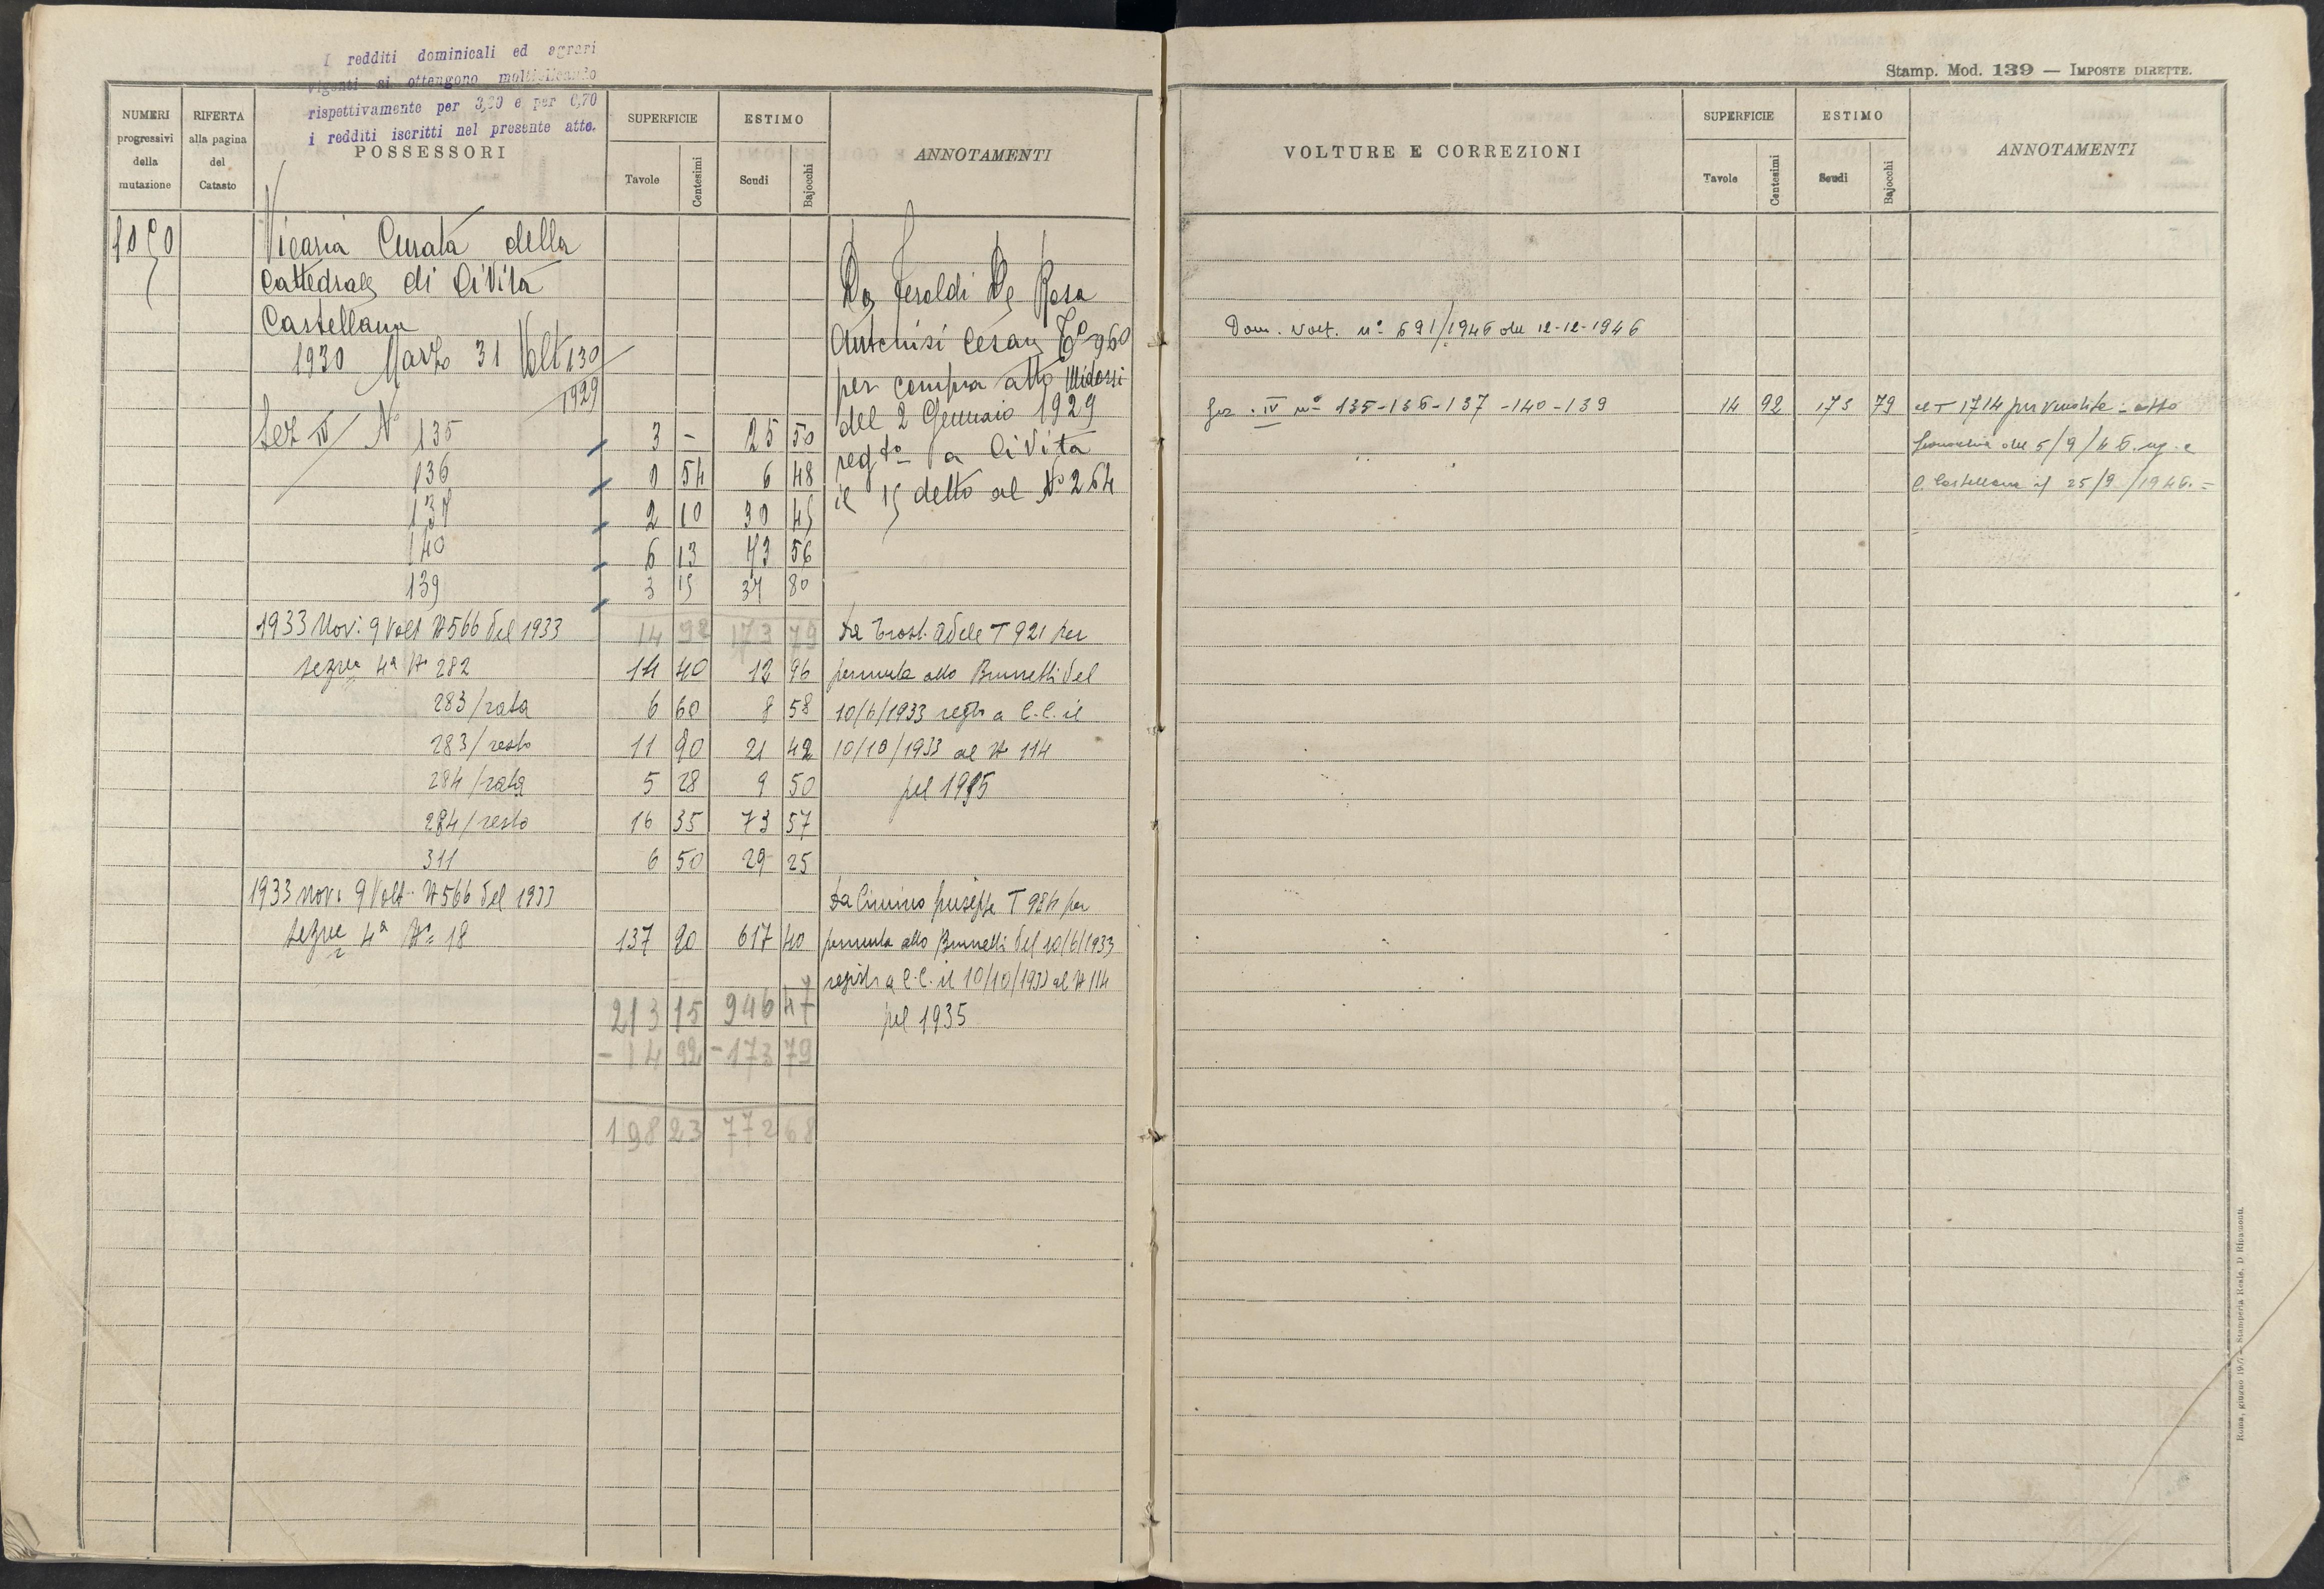 I redditi dominicali ed agrari
vigenti si ottengono moltiplicando
rispettivamente per 3,20 e per 0,70
i redditi iscritti nel presente atto.
NUMERI progressivi della mutazione
RIFERTA alla pagina del Catasto
POSSESSORI
SUPERFICIE
Tavole Centesimi
ESTIMO
Scudi Bajocchi
ANNOTAMENTI
Vicaria Curata della
Cattedrale di Civita
Castellana
1930 Marzo 31 Volt 130
1929
Sez IV N° 135 3 - 25 50
136 0 54 6 48
137 2 10 30 45
140 6 13 73 56
139 3 15 37 80
14 92 173 79
Da Feroldi De Rosa
Antonisi Cesare T° 960
per compra atto Midossi
del 2 Gennaio 1929
regto a Civita
il 15 detto al N° 264
1933 Nov. 9 Volt N 566 del 1933
Sezne 4a N° 282 14 40 12 96
283/rata 6 60 8 58
283/resto 11 90 21 42
284/rata 5 28 9 50
284/resto 16 35 73 57
311 6 50 29 25
Da Adele T 921 per
permuta atto Brunetti del
10/6/1933 regto a C.C. il
10/10/1933 al N 114
pel 1935
1933 nov. 9 Volt. N 566 del 1933
Sezne 4a N° 18 137 20 617 40
Da Cimino Giuseppe T 984 per
permuta atto Brunetti del 10/6/1933
registr a C.C. il 10/10/1933 al N 114
pel 1935
213 15 946 47
- 14 92 - 173 79
198 23 772 68
Stamp. Mod. 139 — IMPOSTE DIRETTE.
VOLTURE E CORREZIONI
SUPERFICIE
Tavole Centesimi
ESTIMO
Scudi Bajocchi
ANNOTAMENTI
Dom. Volt. n° 691/1946 del 12-12-1946
Sez. IV n° 135-136-137-140-139 14 92 173 79
al T 1714 per vendita: atto
del 5/9/46. reg. a
C. Castellana il 25/9/1946. =